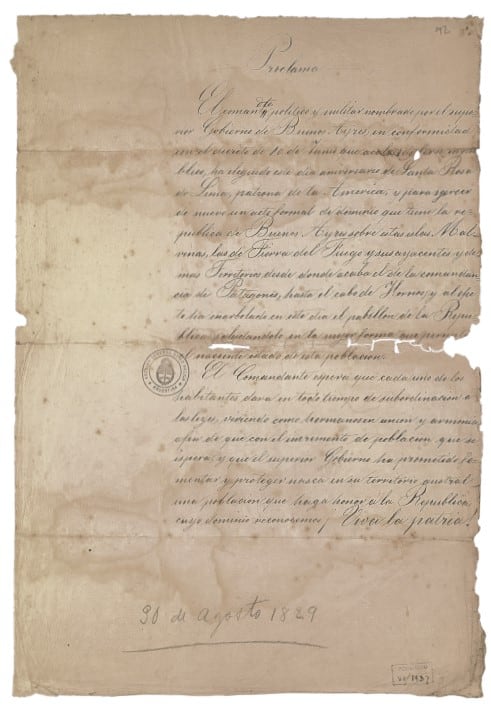 92
Proclama
El comandte político y militar nombrado por el supe-
rior Gobierno de Buenos Ayres, en conformidad
con el decreto de 10 de Junio que acaba
blico, ha elegido este dia aniversario de Santa Rosa
de Lima, patrona de la America, para
de nuevo un acto formal de dominio que tiene la re-
publica de Buenos Ayres sobre estas islas Mal-
vinas, las de Tierra del Fuego y sus adyacentes y de
mas Territorios desde donde acaba el de la comandan
cia de Patagones, hasta el cabo de Hornos; y al efec
to ha enarbolado en este dia el pabellon de la Repu-
blica saludandolo en la mejor forma que permite
el naciente estado de esta poblacion.
El Comandante espera que cada uno de los
habitantes dara en todo tiempo de subordinacion a
las leyes, viviendo como hermanos en union y armonia
afin de que con el incremento de poblacion que se
espera, y que el superior Gobierno ha prometido fo-
mentar y proteger nasca en su territorio austral
una poblacion que haga honor a la Republica,
cuyo dominio reconocemos ¡Viva la patria!
30 de agosto 1829